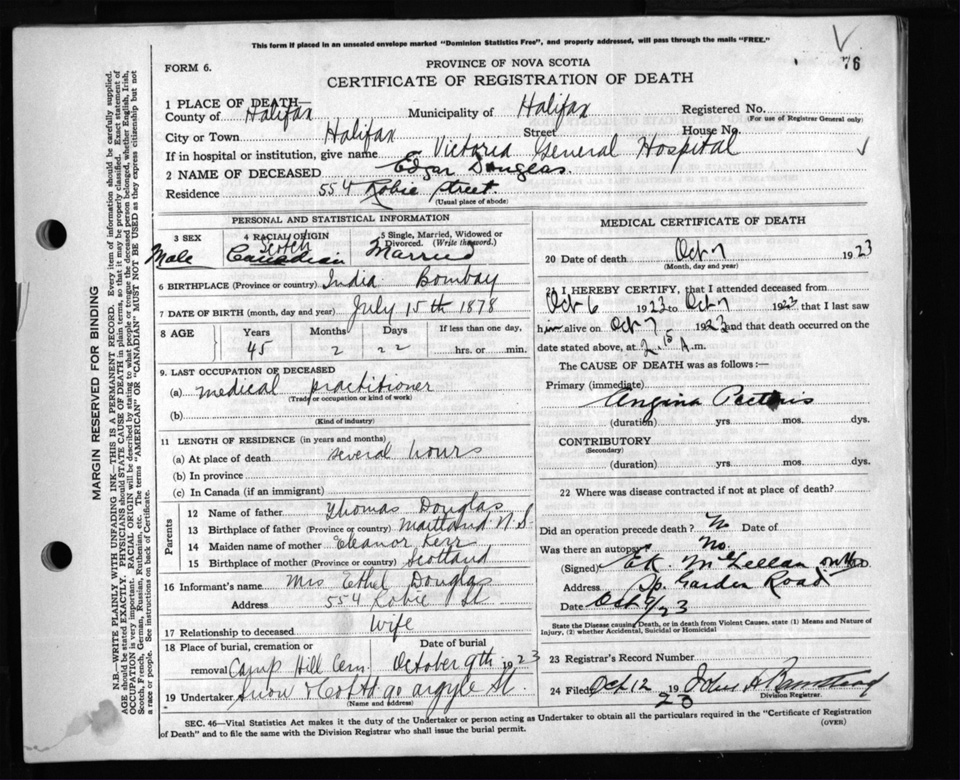 This form if placed in an unsealed envelope marked "Dominion Statistics Free", and properly addressed, will pass through the mails "FREE."
76
FORM 6.
PROVINCE OF NOVA SCOTIA
CERTIFICATE OF REGISTRATION OF DEATH
1 PLACE OF DEATH—
County of Halifax Municipality of Halifax Registered No.
(For use of Registrar General only)
City or Town Halifax Street House No.
If in hospital or institution, give name Victoria General Hospital
2 NAME OF DECEASED Edgar Douglas
Residence 554 Robie Street
(Usual place of abode)
PERSONAL AND STATISTICAL INFORMATION
3 SEX 4 RACIAL ORIGIN 5 Single, Married, Widowed or Divorced. (Write the word.)
Male Scotch Canadian Married
6 BIRTHPLACE (Province or country) India Bombay
7 DATE OF BIRTH (month, day and year) July 15th 1878
8 AGE Years Months Days If less than one day,
45 2 22 hrs. or min.
9. LAST OCCUPATION OF DECEASED
(a) medical practitioner
(Trade or occupation or kind of work)
(b)
(Kind of industry)
11 LENGTH OF RESIDENCE (in years and months)
(a) At place of death several hours
(b) In province
(c) In Canada (if an immigrant)
Parents
12 Name of father Thomas Douglas
13 Birthplace of father (Province or country) Maitland N.S
14 Maiden name of mother Eleanor Kerr
15 Birthplace of mother (Province or country) Scotland
16 Informant's name Mrs Ethel Douglas
Address 554 Robie St
17 Relationship to deceased Wife
18 Place of burial, cremation or removal Date of burial
Camp Hill Cem. October 9th 1923
19 Undertaker Snow & Co Ltd 90 Argyle St.
(Name and address)
MEDICAL CERTIFICATE OF DEATH
20 Date of death Oct 7 1923
(Month, day and year)
21 I HEREBY CERTIFY, that I attended deceased from
Oct 6 1923 to Oct 7 1923 that I last saw
him alive on Oct 7 1923 and that death occurred on
date stated above, at 2.15 A.m.
The CAUSE OF DEATH was as follows:—
Primary (immediate)
Angina Pectoris
(duration) yrs mos. dys.
CONTRIBUTORY
(Secondary)
(duration) yrs mos. dys.
22 Where was disease contracted if not at place of death?
Did an operation precede death? No Date of
Was there an autopsy No.
(Signed) McLellan M.D.
Address Sp. Garden Road
Date Oct 9/23
State the Disease causing Death, or in death from Violent Causes, state (1) Means and Nature of
Injury, (2) whether Accidental, Suicidal or Homicidal
23 Registrar's Record Number
24 Filed Oct 12 1923 John A
Division Registrar.
SEC. 46—Vital Statistics Act makes it the duty of the Undertaker or person acting as Undertaker to obtain all the particulars required in the "Certificate of Registration
of Death" and to file the same with the Division Registrar who shall issue the burial permit.
(OVER)
MARGIN RESERVED FOR BINDING
N.B.—WRITE PLAINLY WITH UNFADING INK—THIS IS A PERMANENT RECORD. Every item of information should be carefully supplied.
AGE should be stated EXACTLY. PHYSICIANS should STATE CAUSE OF DEATH in plain terms, so that it may be properly classified. Exact statement of
OCCUPATION is very important. RACIAL ORIGIN will be described by stating to what people or tongue the deceased person belonged, whether English, Irish,
Scotch, French, German, Russian, Ruthenian, etc. The terms "AMERICAN" OR "CANADIAN" MUST NOT BE USED as they express citizenship but not
a race or people. See instructions on back of Certificate.